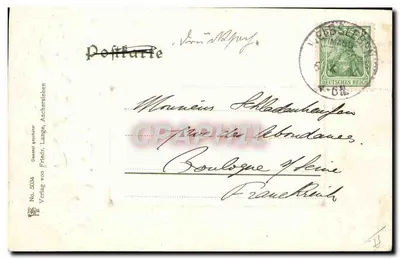 Postkarte
Drucksache
DEUTSCHES REICH
Monsieur Schladenhaufen
rue des Abondances
Boulogne s/Seine
Frankreich
CPAPHIL
Gesetzl. geschützt
No. 5034
Verlag von Friedr. Lange, Aschersleben